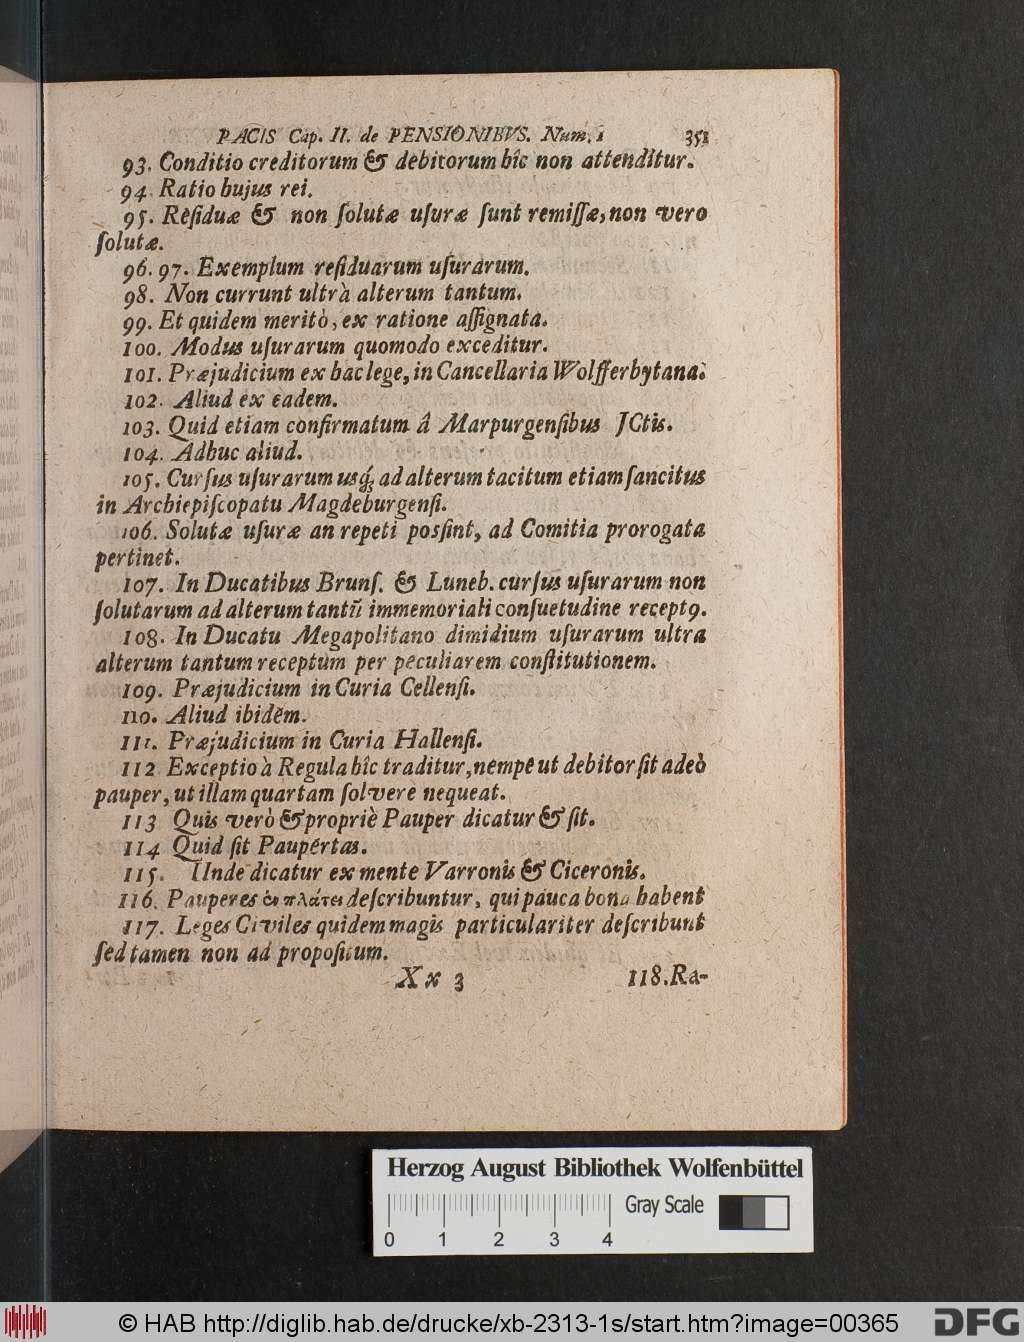 PACIS Cap. II. de PENSIONIBVS. Num. 1 351
93. Conditio creditorum & debitorum hîc non attenditur.
94. Ratio hujus rei.
95. Rèſiduæ & non ſolutæ uſuræ ſunt remiſſæ, non vero
ſolutæ.
96. 97. Exemplum reſiduarum uſurarum.
98. Non currunt ultrà alterum tantum.
99. Et quidem meritò, ex ratione aſſignata.
100. Modus uſurarum quomodo exceditur.
101. Præjudicium ex hac lege, in Cancellaria Wolfferbytana.
102. Aliud ex eadem.
103. Quid etiam confirmatum â Marpurgenſibus JCtis.
104. Adhuc aliud.
105. Curſus uſurarum usq́; ad alterum tacitum etiam ſancitus
in Archiepiſcopatu Magdeburgenſi.
106. Solutæ uſuræ an repeti posſint, ad Comitia prorogata
pertinet.
107. In Ducatibus Brunſ. & Luneb. curſus uſurarum non
ſolutarum ad alterum tantũ immemoriali conſuetudine receptꝰ.
108. In Ducatu Megapolitano dimidium uſurarum ultra
alterum tantum receptum per peculiarem conſtitutionem.
109. Præjudicium in Curia Cellenſi.
110. Aliud ibidẽm.
111. Præjudicium in Curia Hallenſi.
112 Exceptio à Regula hîc traditur, nempe ut debitor ſit adeò
pauper, ut illam quartam ſolvere nequeat.
113 Quis verò & propriè Pauper dicatur & ſit.
114 Quid ſit Paupertas.
115. Unde dicatur ex mente Varronis & Ciceronis.
116. Pauperes ἐν πλάτει deſcribuntur, qui pauca bona habent
117. Leges Civiles quidem magis particulariter deſcribunt
ſed tamen non ad propoſitum.
Xx 3 118. Ra-
Herzog August Bibliothek Wolfenbüttel
Gray Scale
0 1 2 3 4
© HAB http://diglib.hab.de/drucke/xb-2313-1s/start.htm?image=00365
DFG